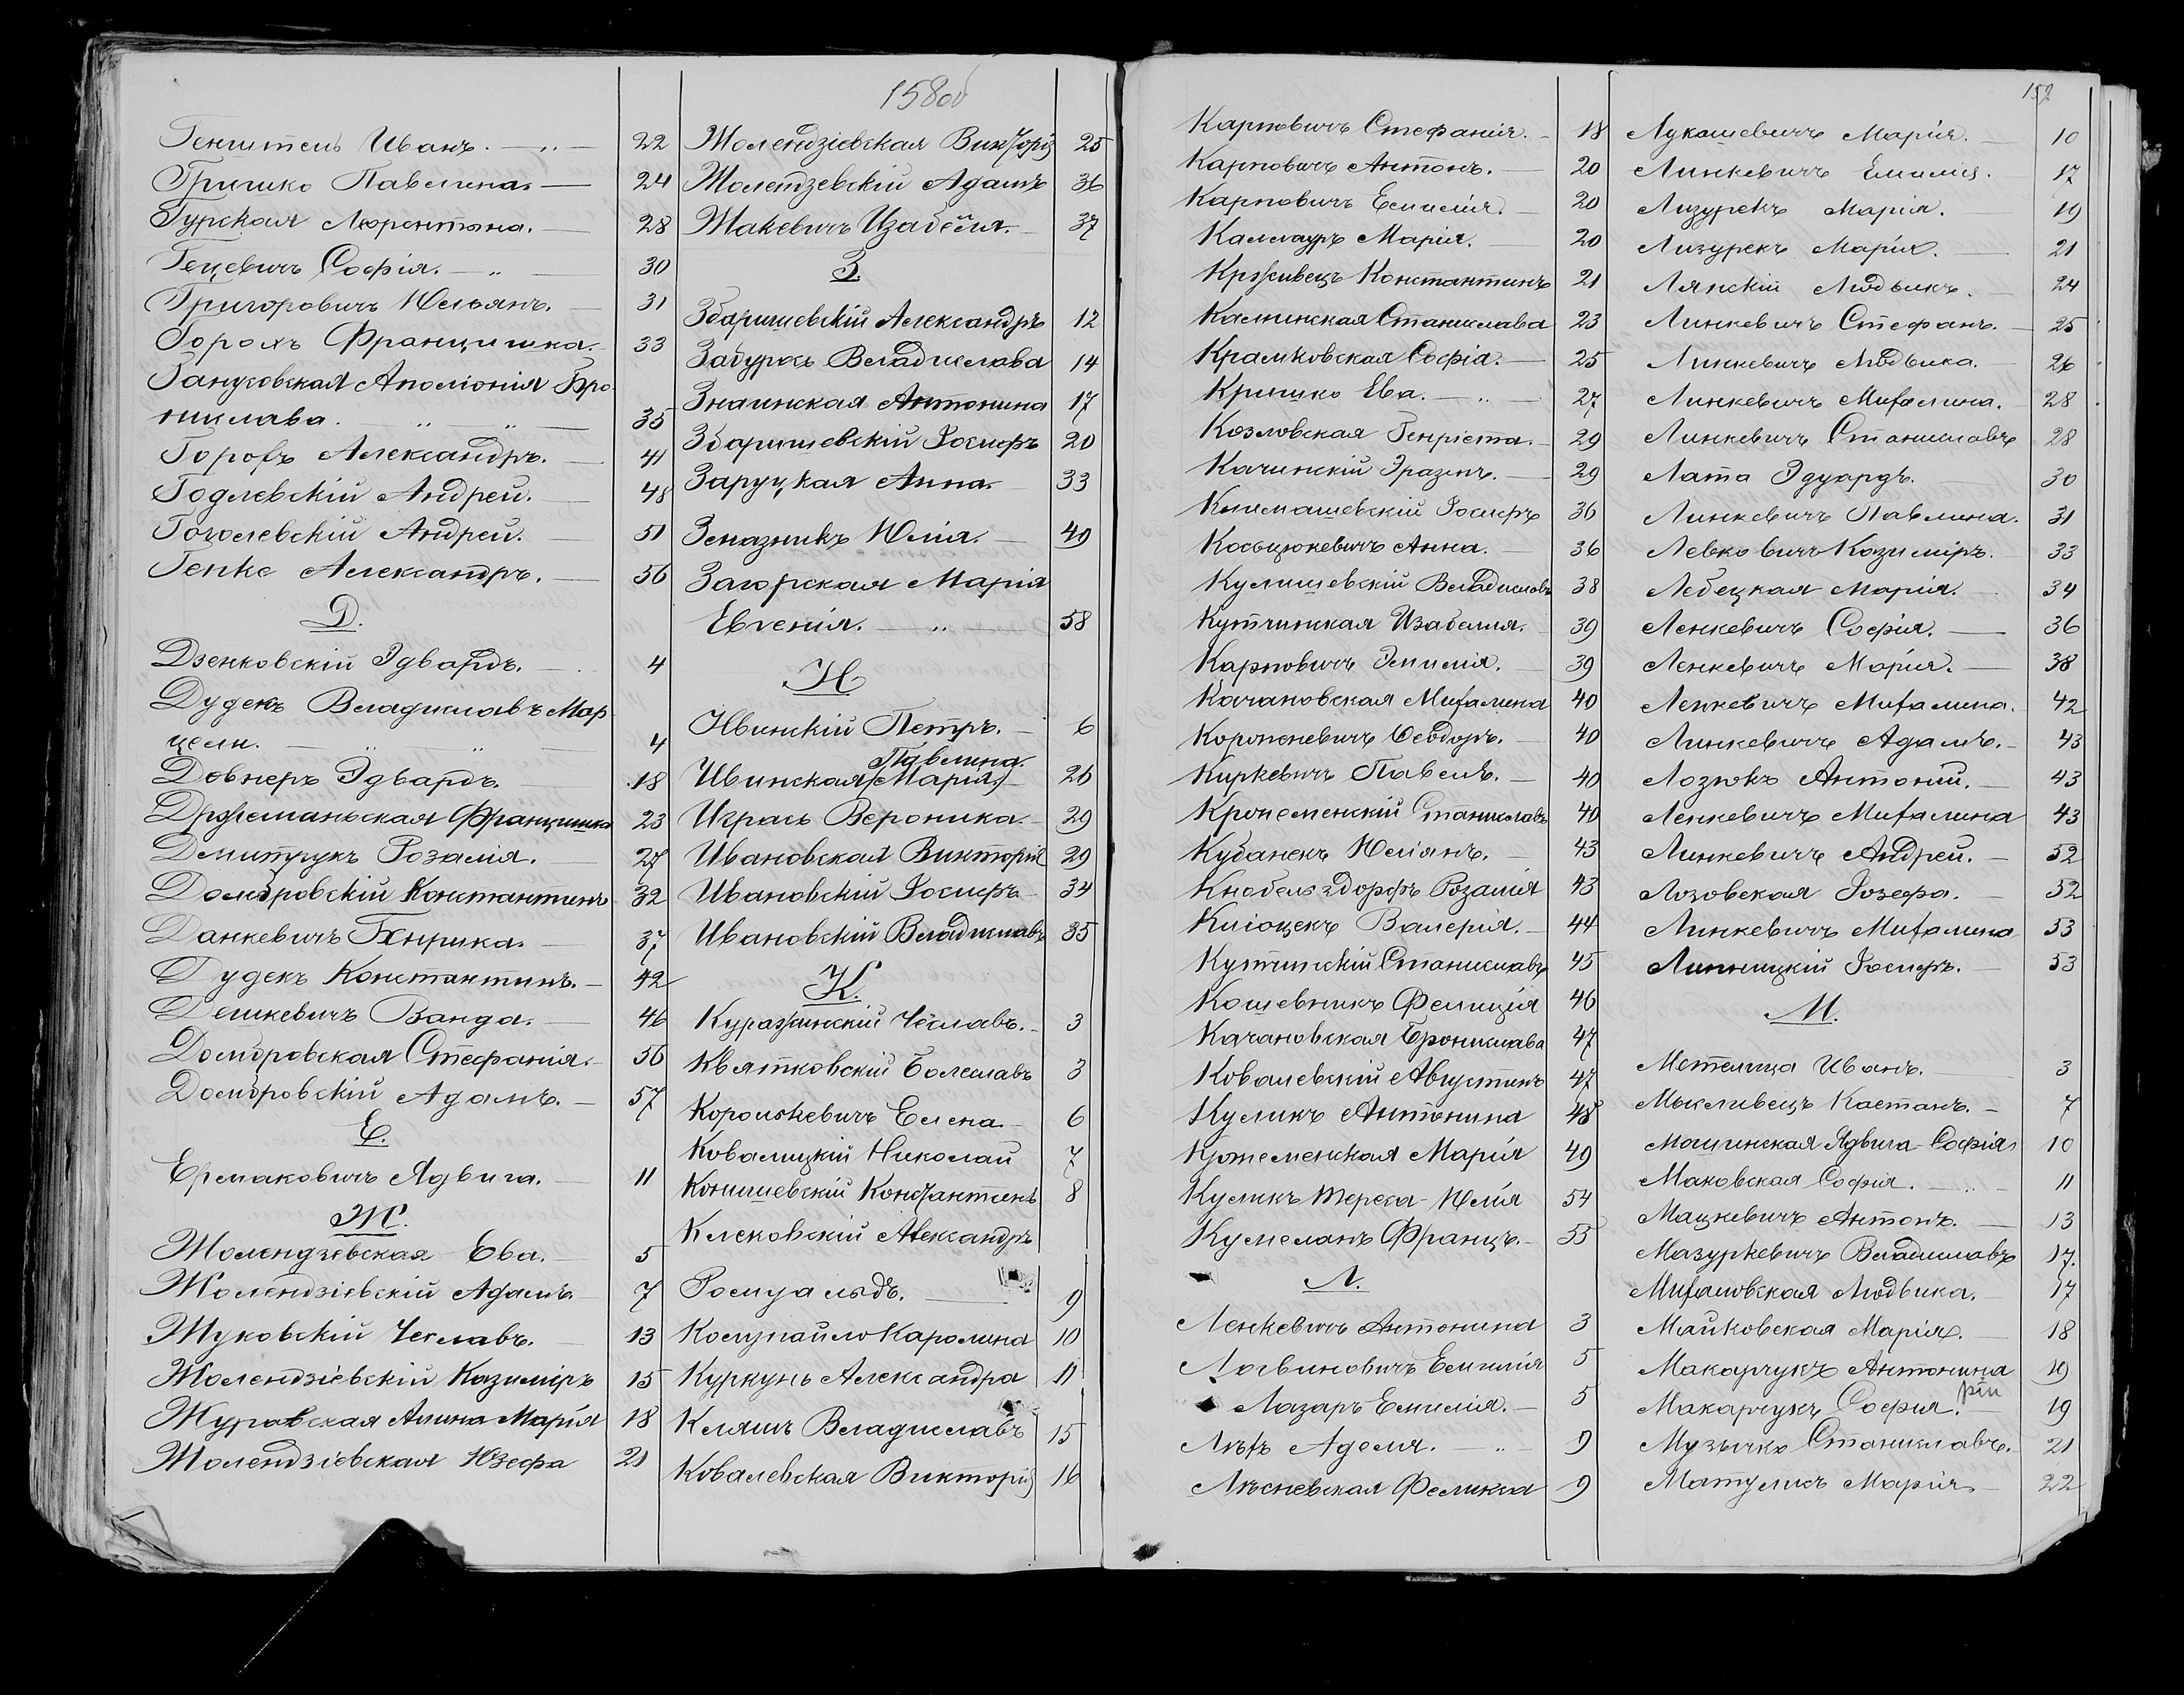 158об
Генштель Иванъ. — „ — 22
Гришко Павелина. — 24
Гурская Лерентина. — 28
Гецевичъ Софія. — „ — 30
Григоровичъ Юльянъ. — 31
Горохъ Францишка. — 33
Гануговская Аполіонія Бро-
нислава. „ „ — 35
Горохъ Александръ. — 41
Годлевскій Андрей. — 48
Гоголевскій Андрей. — 51
Генке Александръ. — 56
Д.
Дзенковскій Эдвардъ. — 4
Дудекъ Владиславъ Мар-
цели. — „ — „ — 4
Довнеръ Эдвардъ. — 18
Држеманьская Францишка 23
Дмитрукъ Розалія. — 27
Домбровскій Константинъ 32
Данкевичъ Генрика. — 37
Дудекъ Константинъ. — 42
Дешкевичъ Ванда. — 46
Домбровская Стефанія. — 56
Домбровскій Адамъ. — 57
Е.
Ермаковичъ Ядвига. — 11
Ж.
Жолендзевская Ева. — 5
Жолендзіевскій Адамъ. — 7
Жуковскій Чеславъ. — 13
Жолендзіевскій Казиміръ 15
Журавская Анна Марія 18
Жолендзіевская Юзефа 21
Жолендзіевская Викторія 25
Жолендзевскій Адамъ 36
Жакевичъ Изабелла. — 37
З.
Збаришевскій Александръ 12
Забурокъ Владислава 14
Знаинская Антонина 17
Збаришевскій Іосифъ 20
Заруцкая Анна. 33
Зеназникъ Юлія. — 49
Загорская Марія
Евгенія. — „ — 58
И
Ивинскій Петръ. — 6
Павелина.
Ивинская (Марія) — 26
Играсъ Вероника. — 29
Ивановская Викторія 29
Ивановскій Іосифъ — 34
Ивановскій Владиславъ 35
К.
Куражинскій Чеславъ. — 3
Квятковскій Болеславъ 3
Королькевичъ Елена — 6
Ковалицкій Николай 7
Конишевскій Константинъ 8
Клековскій Александръ
Ромуальдъ. — 9
Космпайло Каролина 10
Куркунъ Александра 11
Кляшъ Владиславъ 15
Ковалевская Викторія 16
Карповичъ Стефанія. — 18
Карповичъ Антонъ. — 20
Карповичъ Емилія. — 20
Калмауръ Марія. — 20
Кржсивецъ Константинъ 21
Калинская Станислава 23
Крамковская Софія. — 25
Кришко Ева. — „ — 27
Козловская Генріета. — 29
Качинскій Эразмъ. — 29
Климашевскій Іосифъ 36
Косьцюкевичъ Анна. — 36
Кулишевскій Владиславъ 38
Кутчинская Изабелла. — 39
Карповичъ Эмилія. — 39
Качановская Михалина 40
Короткевичъ Ѳеодоръ. — 40
Киркевичъ Павелъ. — 40
Кржеменскій Станиславъ 40
Кубанекъ Юліянъ. — 43
Кнобельздорфъ Розалія 43
Клюцекъ Валерія. — 44
Кутчинскій Станиславъ 45
Кошевникъ Фелиція 46
Качановская Бронислава 47
Ковалевскій Августинъ 47
Куликъ Антонина 48
Кржеменская Марія 49
Куликъ Тереса-Юлія 54
Кумеланъ Францъ. — 55
Л.
Ленкевичъ Антонина 3
Логвиновичъ Емилія 5
Лазаръ Емилія. — 5
Лѣхъ Аделя. — „ — 9
Лѣсневская Фелиція 9
157
Лукашевичъ Марія. — 10
Линкевичъ Емилія. 17
Лизурекъ Марія. — 19
Лизурекъ Марія. — 21
Лянскій Людвикъ. — 24
Линкевичъ Стефанъ. — 25
Линкевичъ Людвика. — 26
Линкевичъ Михалина. — 28
Линкевичъ Станиславъ 28
Лата Эдуардъ. 30
Линкевичъ Павлина. 31
Левковичъ Казиміръ. 33
Лебецкая Марія. 34
Ленкевичъ Софія. — 36
Ленкевичъ Марія. — 38
Ленкевичъ Михалина. 42
Линкевичъ Адамъ. — 43
Лозюкъ Антоній. — 43
Ленкевичъ Михалина 43
Линкевичъ Андрей. — 52
Лозовская Іозефа. — 52
Линкевичъ Михалина 53
Липницкій Іосифъ. — 53
М.
Метелица Иванъ. — 3
Мысливецъ Каетанъ. — 7
Мощинская Ядвига-Софія 10
Маковская Софія. — „ — 11
Мацкевичъ Антонъ. — 13
Мазуркевичъ Владиславъ 17.
Михаловская Людвика. — 17
Майковская Марія. — 18
Макарчукъ Антонина 19
рія
Макарчукъ Софія. — 19
Музычко Станиславъ. — 21
Матуликъ Марія — 22